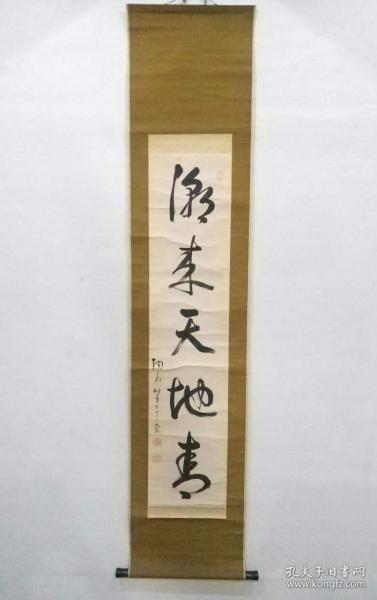 潮来天地青
孔夫子旧书网
www.kongfz.com